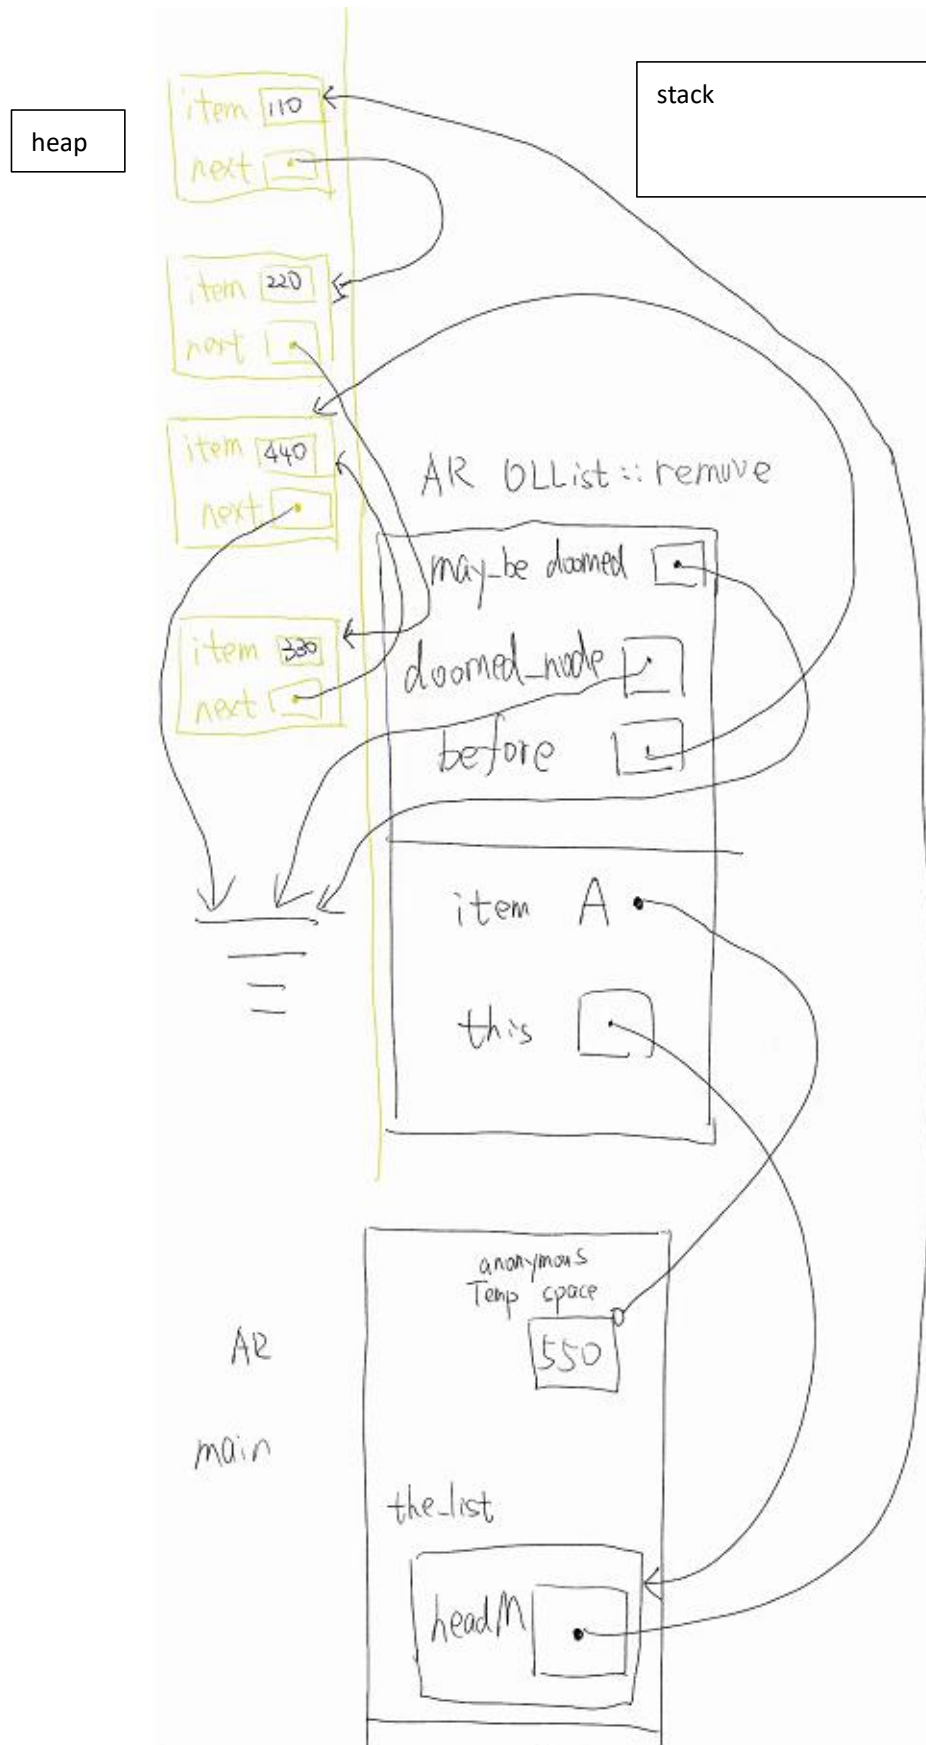 heap
stack
item 110
next
item 220
next
item 440
next
item 330
next
AR OLList::remove
may_be doomed
doomed_node
before
item A
this
anonymous
Temp space
550
AR
main
the_list
headM